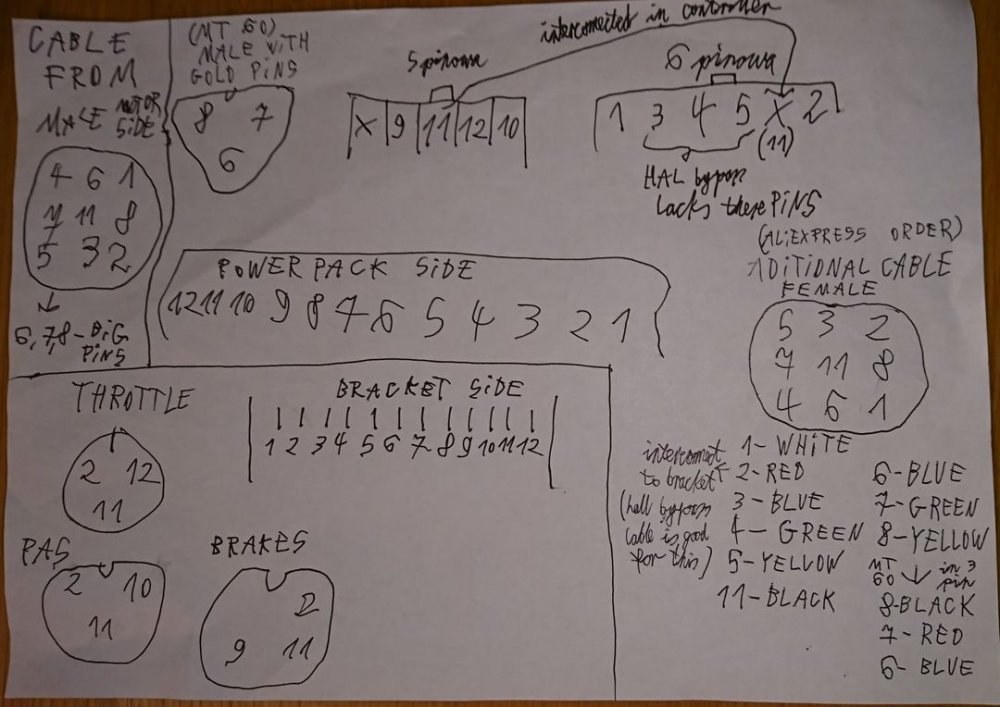 CABLE
FROM
MALE MOTOR
SIDE
4 6 1
7 11 8
5 3 2
6,7,8-BIG
PINS
(MT 60)
MALE WITH
GOLD PINS
8 7
6
5 pinowa
X 9 11 12 10
interconnected in controller
6 pinowa
1 3 4 5 X 2
(11)
HAL bypass
lacks these PINS
POWER PACK SIDE
12 11 10 9 8 7 6 5 4 3 2 1
(ALIEXPRESS ORDER)
ADITIONAL CABLE
FEMALE
5 3 2
7 11 8
4 6 1
THROTTLE
2 12
11
BRACKET SIDE
1 2 3 4 5 6 7 8 9 10 11 12
PAS
2 10
11
BRAKES
2
9 11
interconnect
to bracket
(hall bypass
cable is good
for this)
1- WHITE
2-RED
3-BLUE
4-GREEN
5-YELLOW
11-BLACK
6-BLUE
7-GREEN
8-YELLOW
MT 60 in 3 pin
8-BLACK
7-RED
6-BLUE